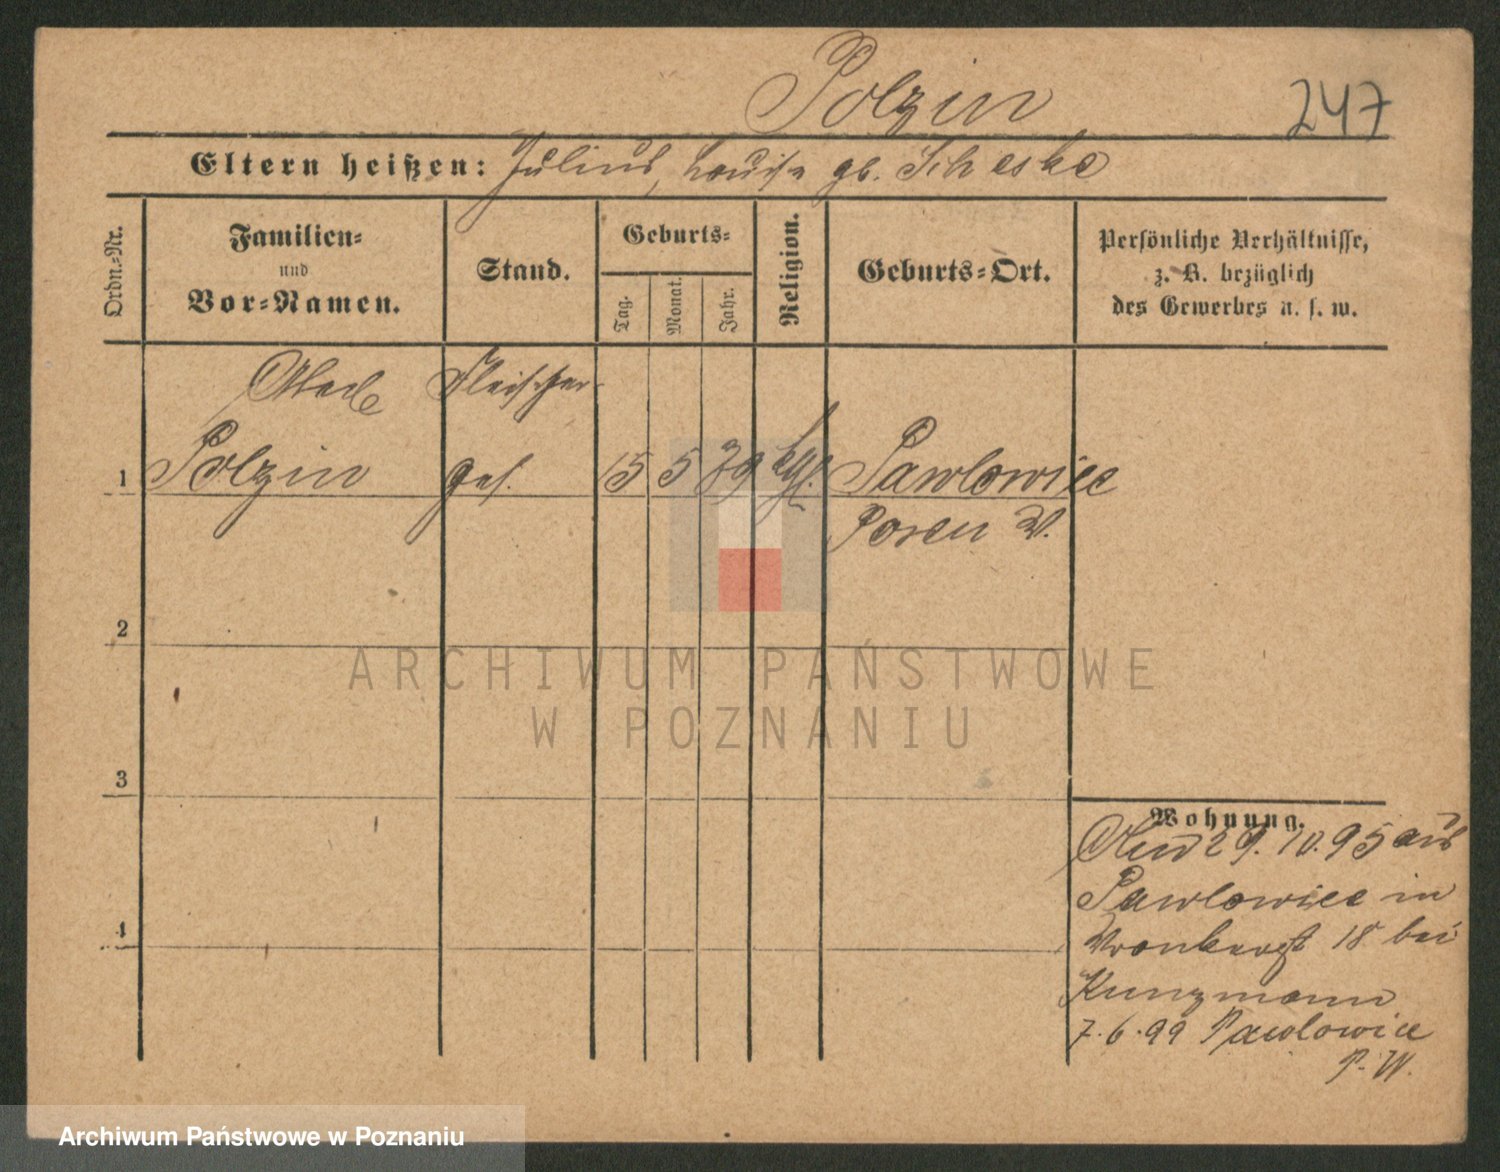 Polzin
247
Eltern heißen: Julius, Louise gb. Scheske
Ordn.-Nr.
Familien-
und
Vor-Namen.
Stand.
Geburts-
Tag.
Monat.
Jahr.
Religion.
Geburts-Ort.
Persönliche Verhältnisse,
z. B. bezüglich
des Gewerbes u. s. w.
Fleischer
1 Polzin ges. 15 5 79 Pawlowice
Posen W.
2
3
4
ARCHIWUM PAŃSTWOWE
W POZNANIU
Wohnung.
29.10.95 aus
Pawlowice in
18 bei
Kunzmann
7.6.99 Pawlowice
P. W.
Archiwum Państwowe w Poznaniu